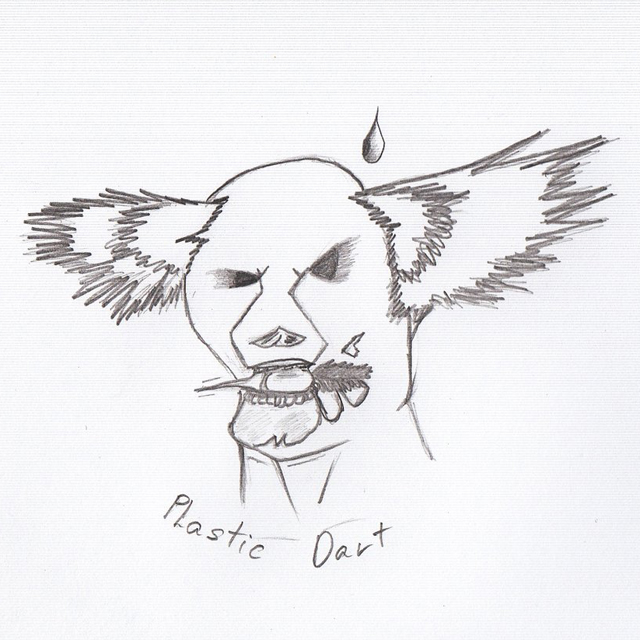 Plastic Dart